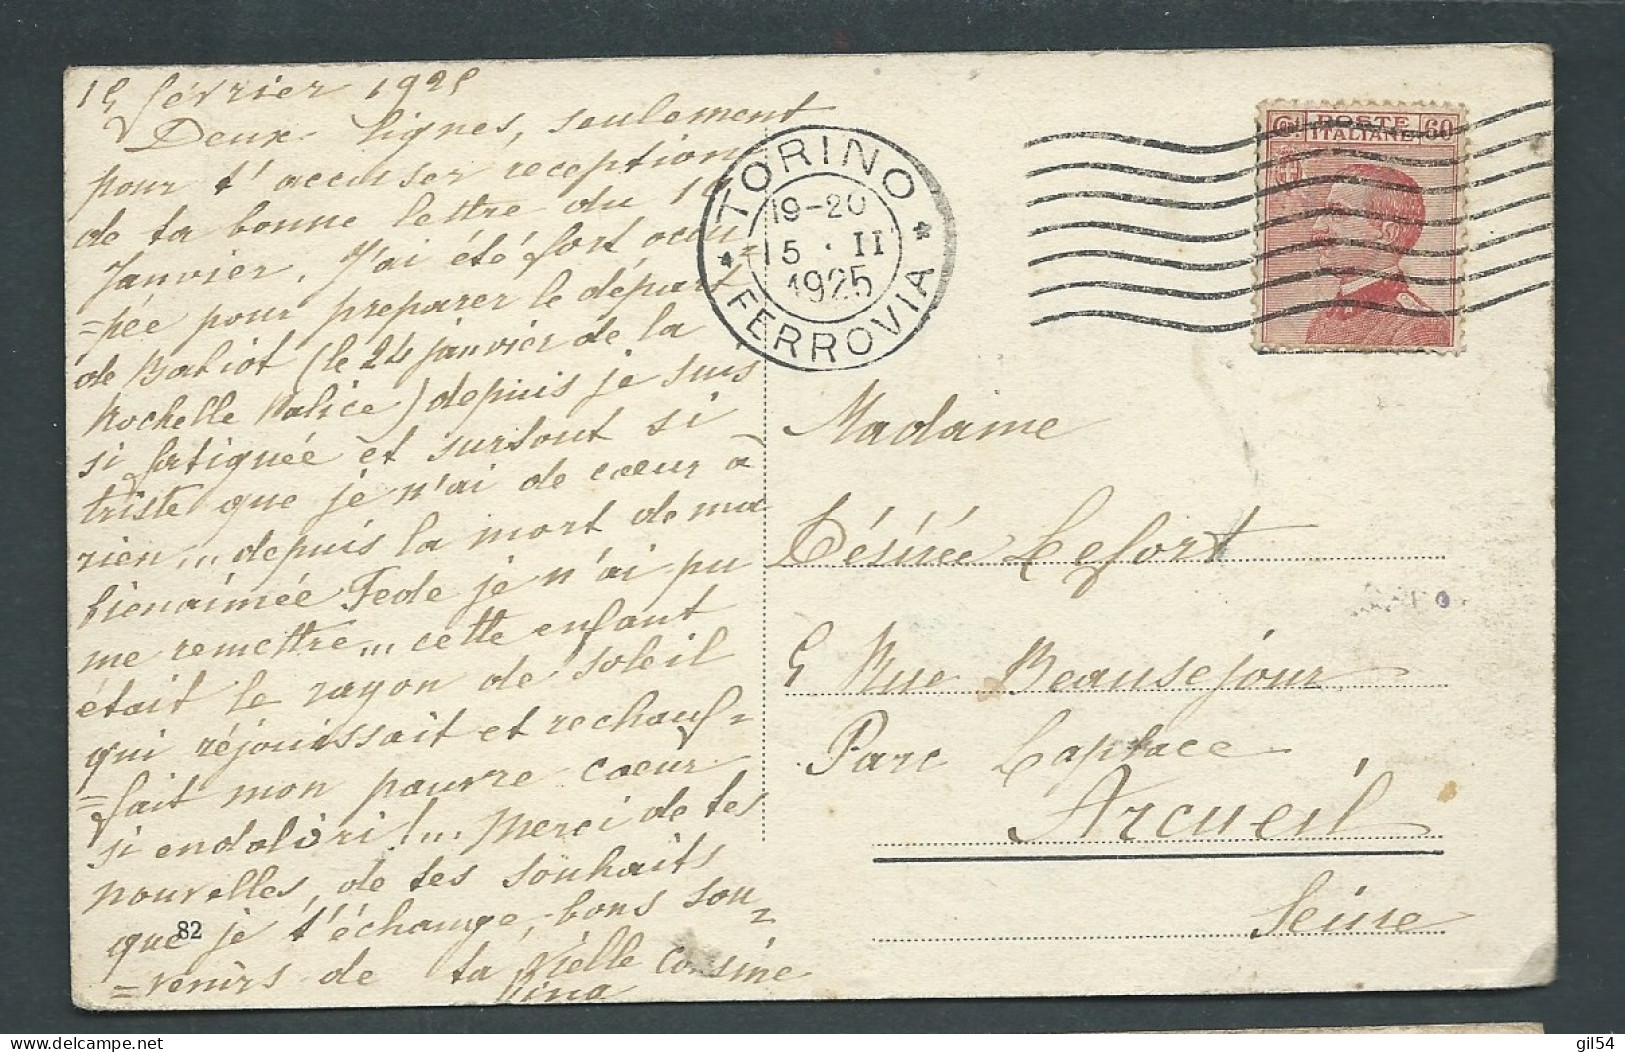 15 février 1925
Deux lignes, seulement
pour t'accuser reception
de ta bonne lettre du 19
Janvier, J'ai été fort occu
=pée pour preparer le départ
de (le 24 janvier de la
Rochelle Palice) depuis je suis
si fatiguée et surtout si
triste que je n'ai de coeur à
rien... depuis la mort de ma
bienaimée Fede je n'ai pu
me remettre... cette enfant
était le rayon de soleil
qui réjouissait et rechauf=
=fait mon pauvre coeur
si endolori!... Merci de tes
nouvelles, de tes souhaits
que je t'échange, bons sou=
=venirs de ta vieille cousine
82
TORINO
19-20
15 · II
1925
FERROVIA
Ct POSTE 60
ITALIANE
Madame
Désirée Lefort
5 Rue Beausejour
Parc Laplace
Arcueil
Seine
gil54